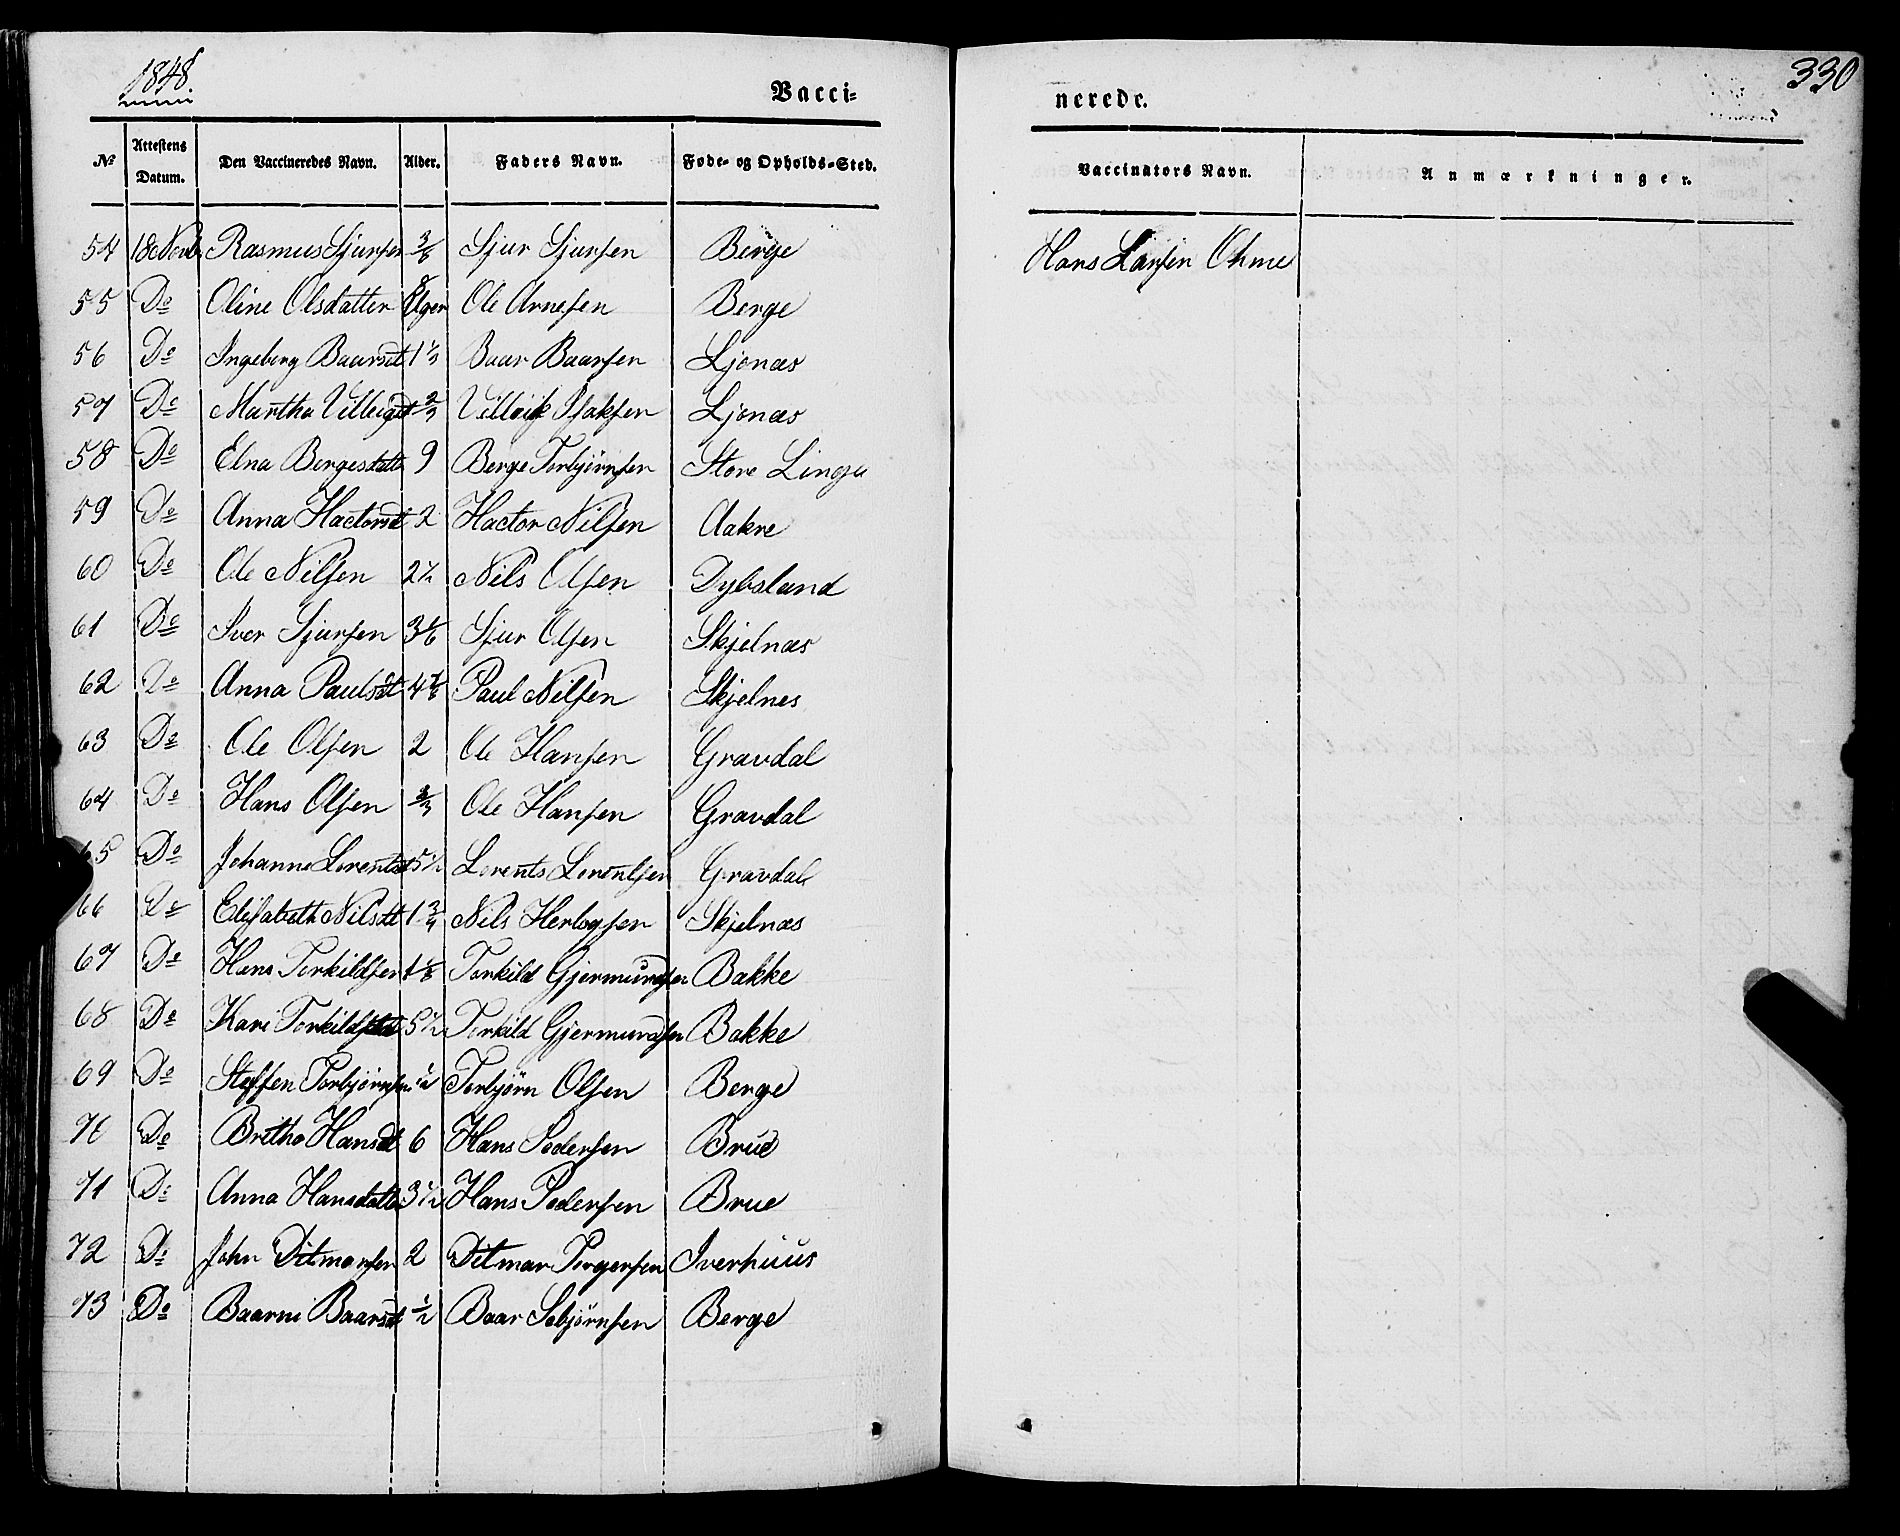 1848.
Vacci-
№ Attestens Datum. Den Vaccineredes Navn. Alder. Faders Navn. Føde- og Opholds-Sted.
54 18 Novb Rasmus Sjursen 3/6 Sjur Sjursen Berge
55 Do Oline Olsdatter Uger Ole Arnesen Berge
56 Do Ingeborg Baarsdt 1 1/3 Baar Baarsen Ljonæs
57 Do Martha 2/3 Isaksen Ljonæs
58 Do Elna Bergesdatt 9 Berge Torbjørnsen Store Linga
59 Do Anna Hactorsdt 2 Hactor Nilsen Aakre
60 Do Ole Nilsen 2 1/2 Nils Olsen Dybsland
61 Do Iver Sjursen 3 1/6 Sjur Olsen Skjelnæs
62 Do Anna Paulsdt 4 Paul Nilsen Skjelnes
63 Do Ole Olsen 2 Ole Hansen Gravdal
64 Do Hans Olsen 2/3 Ole Hansen Gravdal
65 Do Johanna Lorentsdt 5 1/2 Lorents Lorentsen Gravdal
66 Do Elisabeth Nilsdt 1 3/4 Nils Herlogsen Skjelnæs
67 Do Hans Torkildsen 1 Torkild Gjermundsen Bakke
68 Do Kari Torkildsdatt 5 1/2 Torkild Gjermundsen Bakke
69 Do Steffen Torbjørnsen 1/2 Torbjørn Olsen Berge
70 Do Britha Hansdt 6 Hans Pedersen Brue
71 Do Anna Hansdatter 3 1/2 Hans Pedersen Brue
72 Do John Ditmarsen 2 Ditmar Torgersen Iverhuus
73 Do Baarni Baarsdt 1/2 Baar Sebjørnsen Berge
330
nerede.
Vaccinators Navn. Anmærkninger.
Hans Larsen Ohme